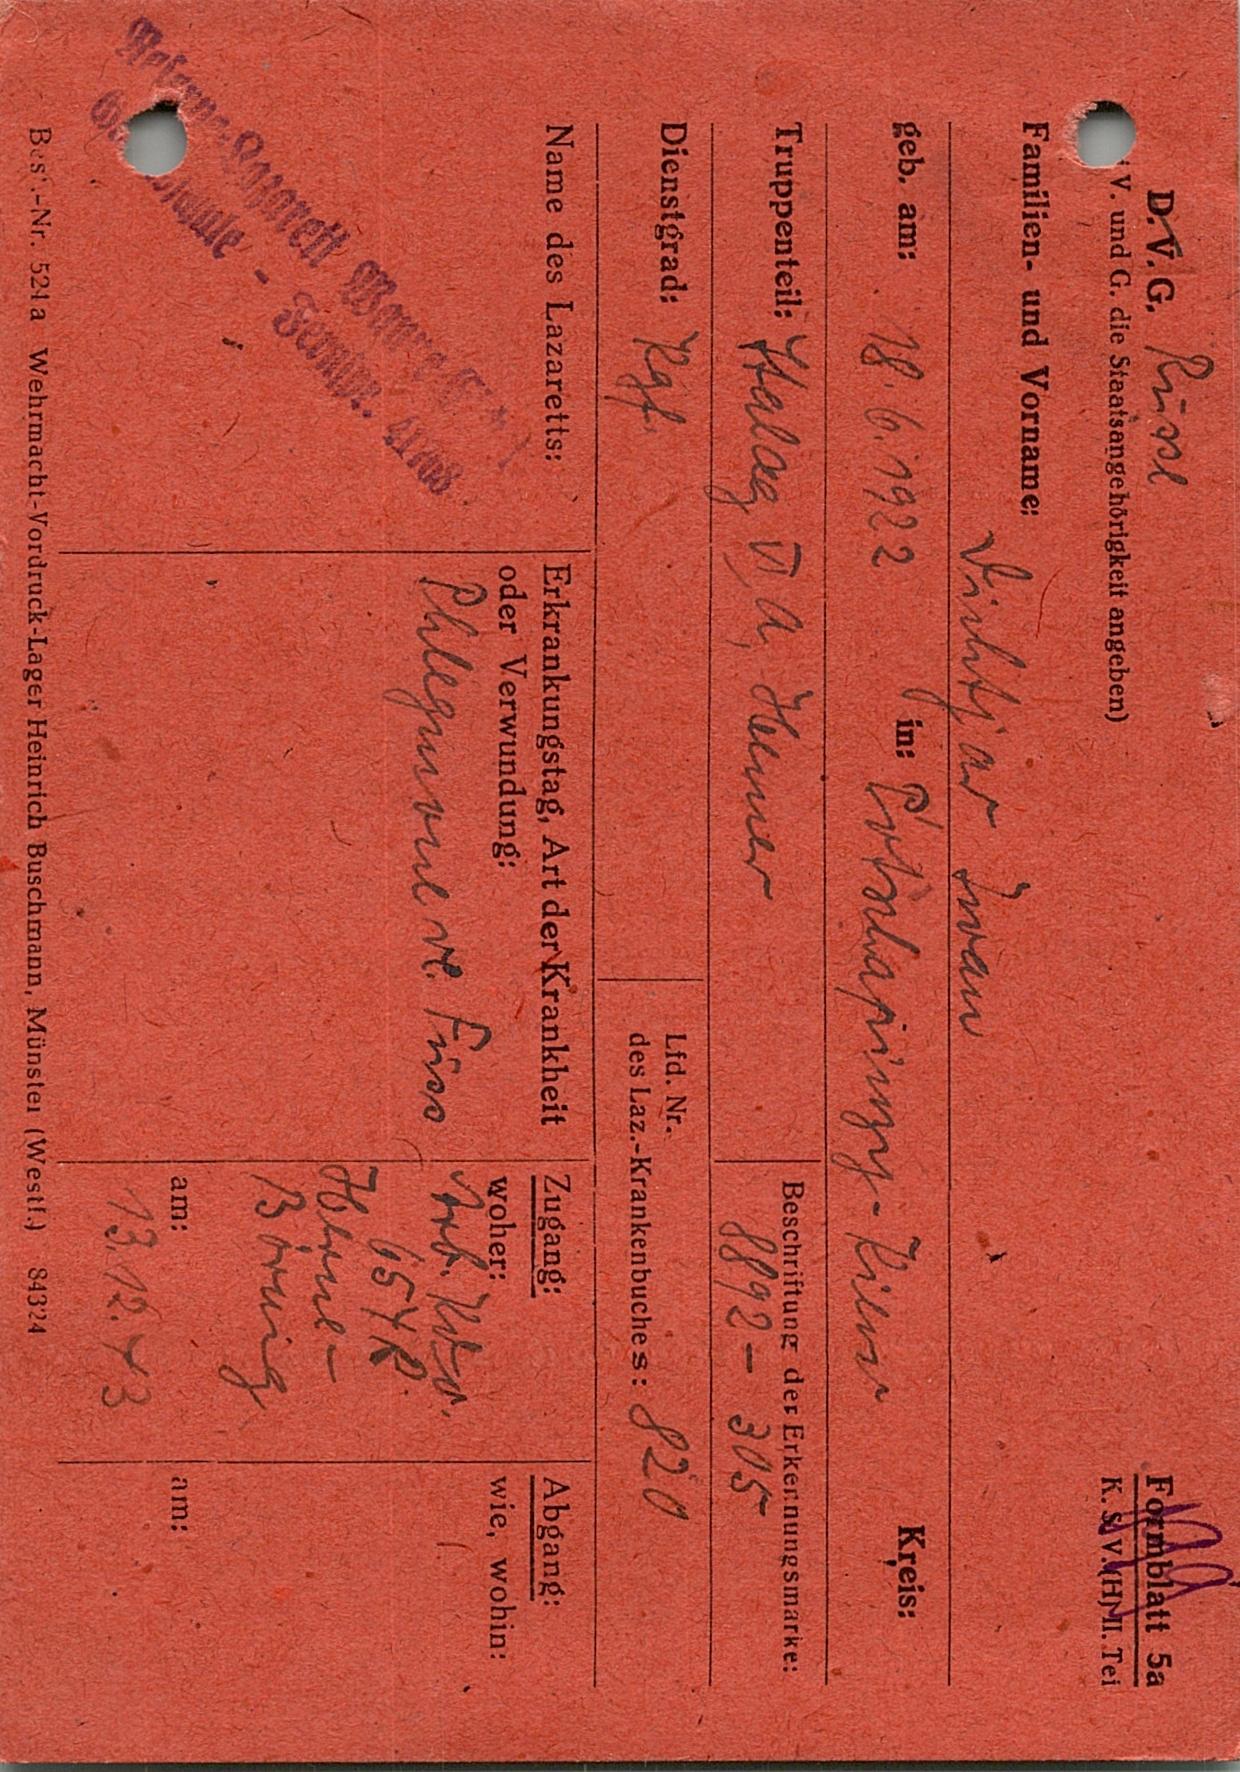 D. V. G. Russe
V. und G. die Staatsangehörigkeit angeben)
Formblatt 5a
K. S. V. (H) II. Tei
Familien- und Vorname:
Iwan
geb. am: 18.6.1922 in:
Kreis:
Truppenteil: Stalag VI A, Hemer
Beschriftung der Erkennungsmarke:
8892 - 305
Dienstgrad: Kgf.
Lfd. Nr.
des Laz.-Krankenbuches: 820
Name des Lazaretts:
Reserve-Lazarett
- Fernspr.
Erkrankungstag, Art der Krankheit
oder Verwundung:
Phlegmone re. Fuss
Zugang:
woher:
Arb. Kdo.
Herne-
Börnig
am:
13.12.43
Abgang:
wie, wohin:
am:
Best.-Nr. 521a Wehrmacht-Vordruck-Lager Heinrich Buschmann, Münster (Westf.) 84324